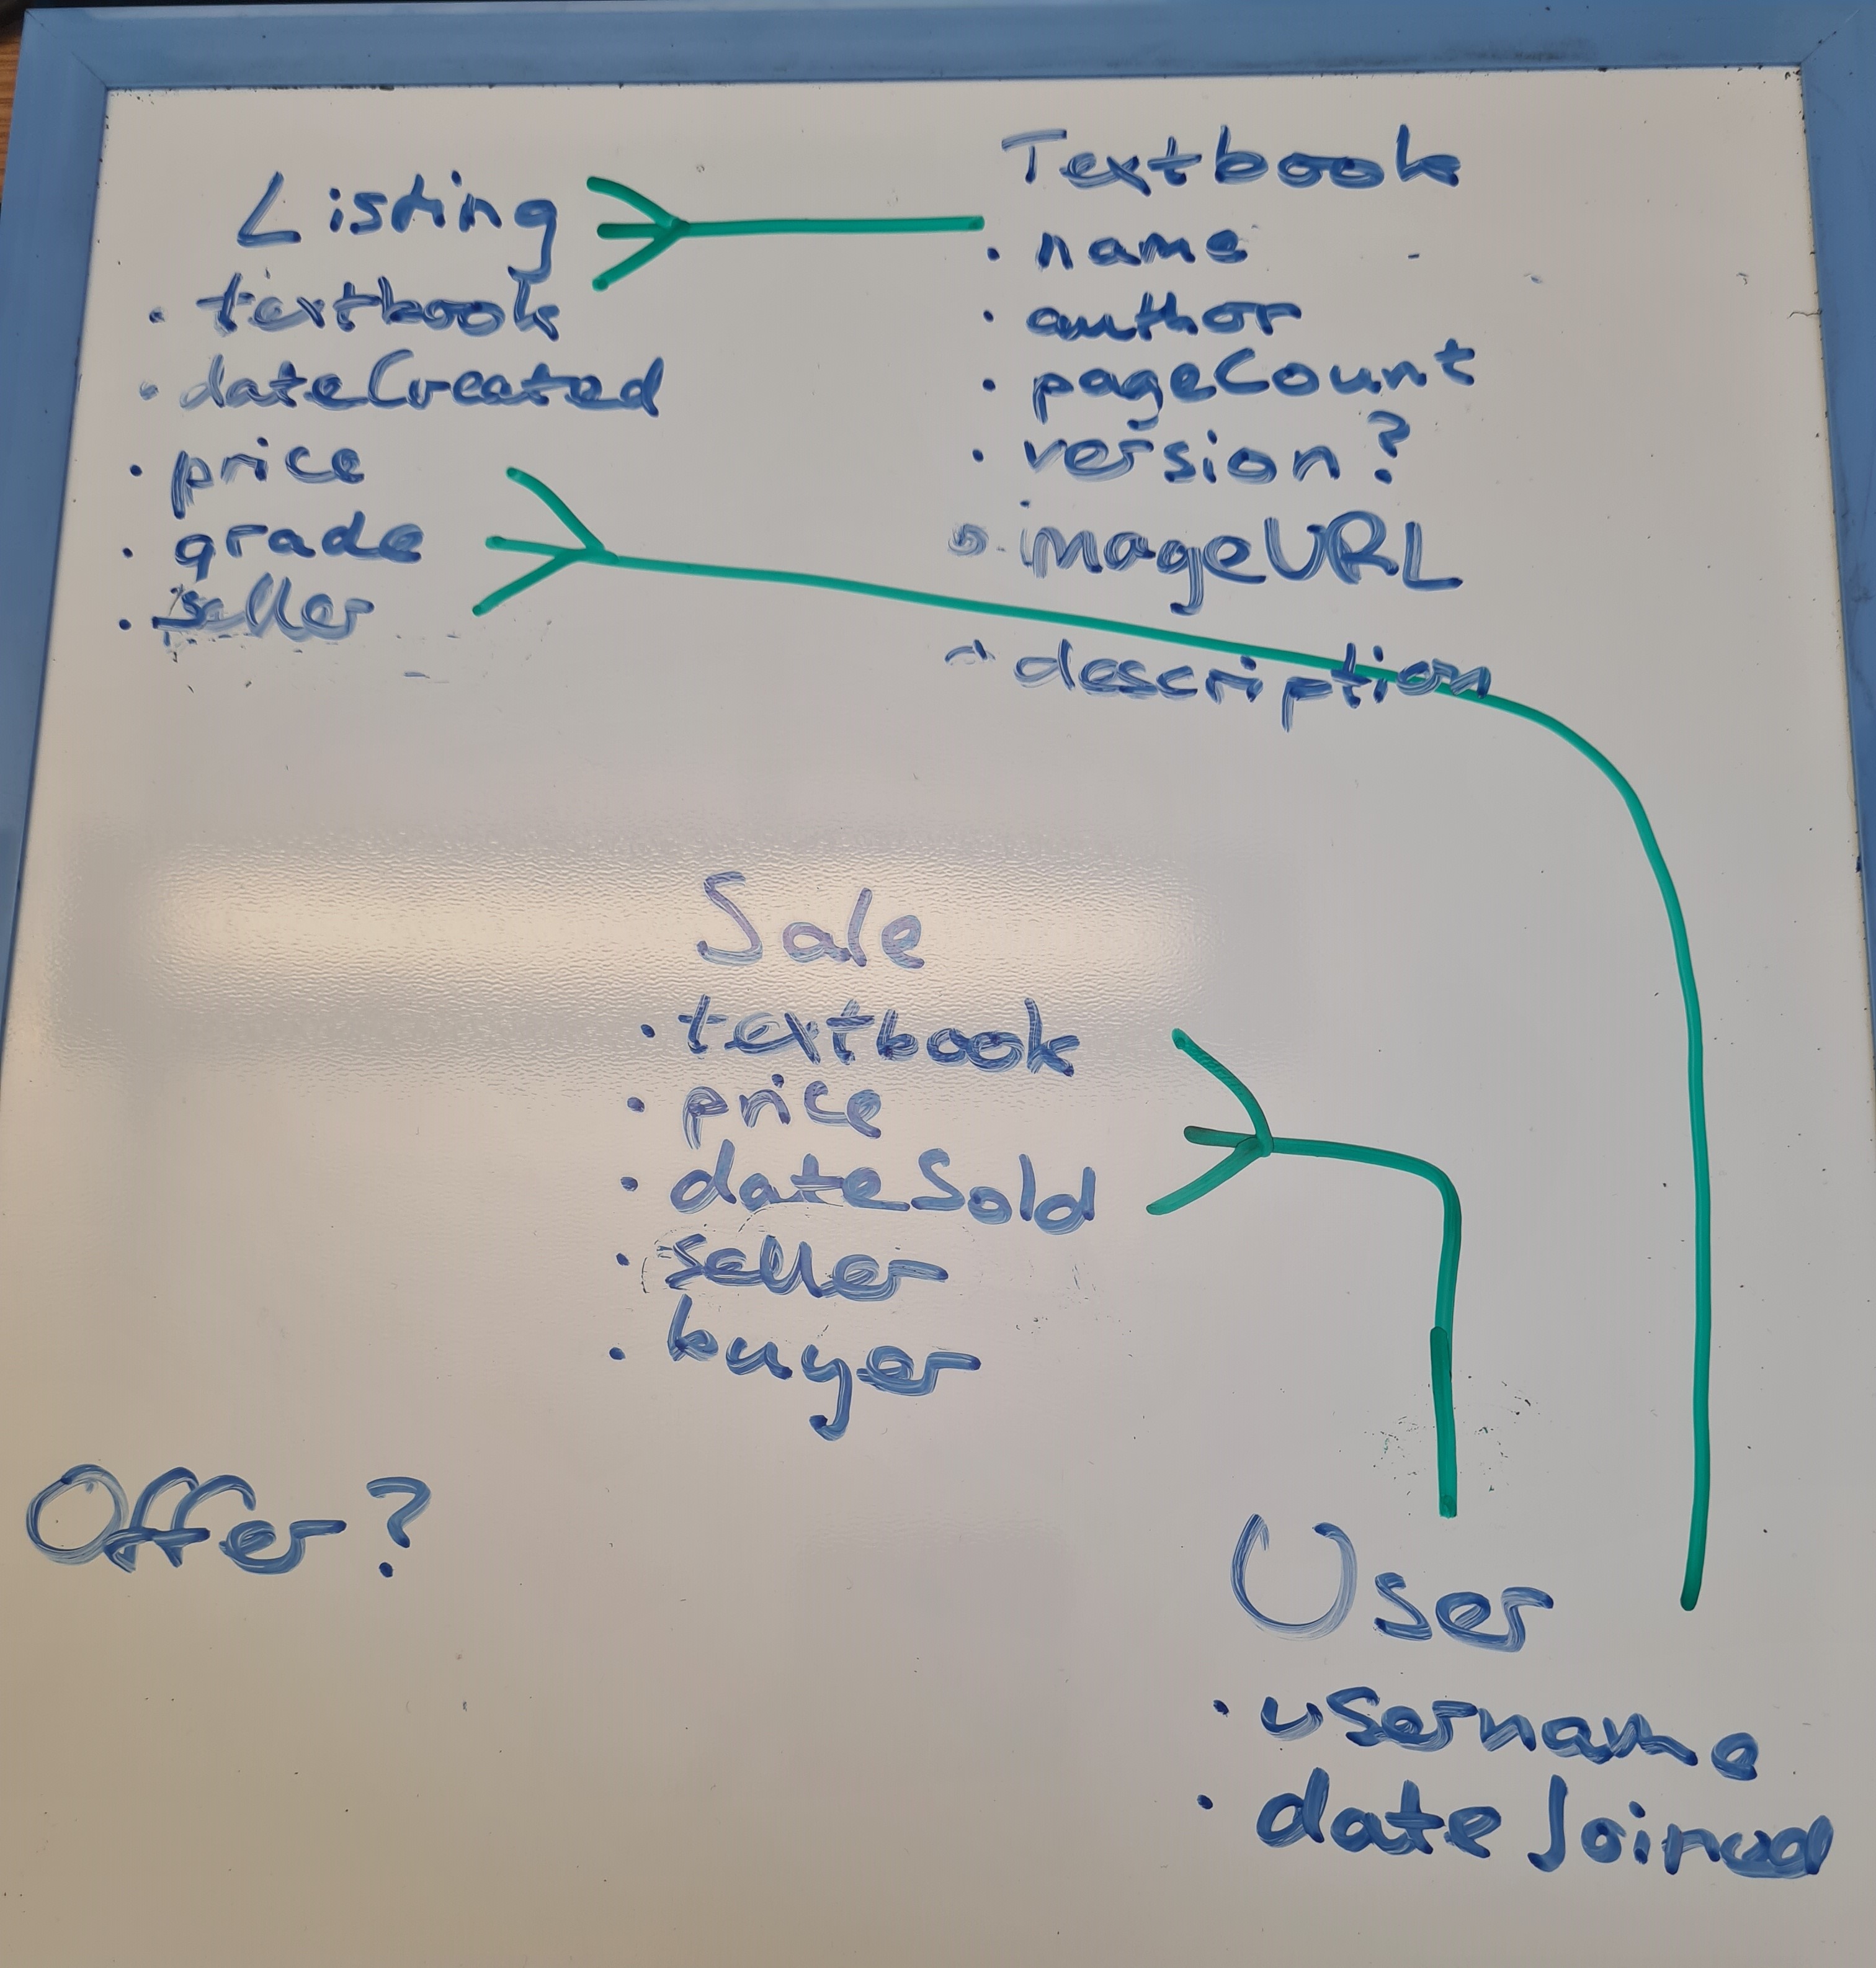 Listing
· textbook
· dateCreated
· price
· grade
· seller
Textbook
· name
· author
· pageCount
· version?
· imageURL
· description
Sale
· textbook
· price
· dateSold
· seller
· buyer
Offer?
User
· username
· dateJoined